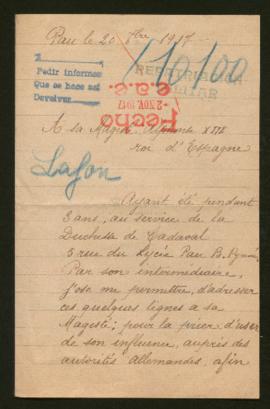 Pau le 20 7bre 1917
110100
REPATRIACION
MILITAR
Pedir informes
Que se hace así
Devolver
Fecho
- 2 NOV. 1917
A sa Majesté Alphonse XIII
roi d'Espagne
Lafon
Ayant été pendant
3 ans, au service de la
Duchesse de Cadaval
5 rue du Lycée Pau B. Pyrén,
Par son intermédiaire,
j'ose me permettre, d'adresser
ces quelques lignes a sa
Magesté; pour la prier d'user
de son influence, auprès des
autorités allemandes, afin